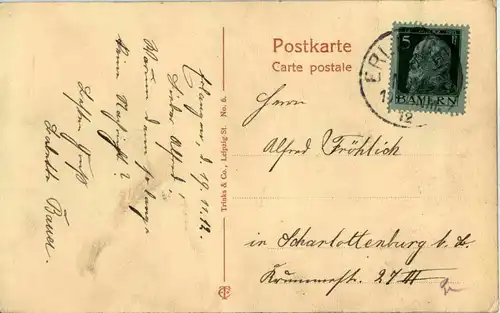 Postkarte
Carte postale
5
BAYERN
ERL
12
Erlangen, d. 19.11.12.
Lieber Alfred!
Warum denn so lange
keine Nachricht?
Besten Gruß
Bauer
Trinks & Co., Leipzig St. No. 6.
Herrn
Alfred Fröhlich
in Scharlottenburg b. B.
Krummestr. 27 III